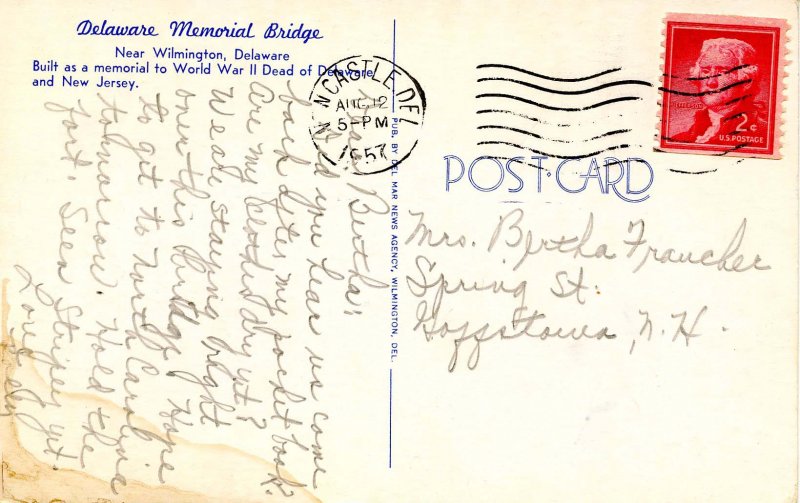 Delaware Memorial Bridge
Near Wilmington, Delaware
Built as a memorial to World War II Dead of Delaware
and New Jersey.
N. CASTLE DEL.
AUG 12
5-PM
1957
JEFFERSON
2¢
U.S. POSTAGE
POST CARD
PUB. BY DEL MAR NEWS AGENCY, WILMINGTON, DEL.
Mrs. Bertha Francher
Spring St.
Goffstown, N.H.
Bertha:
did you hear us come
back after my pocket book.
Are my clothes dry yet?
We are staying right
over this bridge. Hope
to get to North Carolina
tohmorrow. Hold the
fort. Seen Stripes yet.
Love